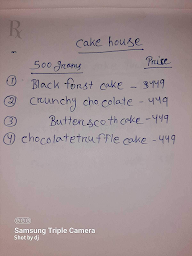 R
cake house
500 grams Prise
① Black forist cake - 3449
② crunchy chocolate - 449
③ Butterscoth cake - 449
④ chocolatetruffle cake - 449
Samsung Triple Camera
Shot by dj